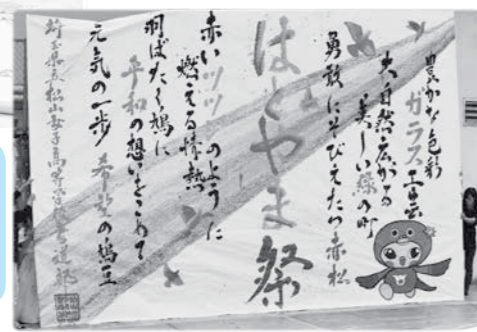 豊かな色彩
ガラス工芸
大自然広がる
美しい緑の町
勇敢にそびえたつ赤松
はとやま祭
赤いツツジのように
燃える情熱
羽ばたく鳩に
平和の想いをこめて
元気の一歩 希望の鳩豆
埼玉県立松山女子高等学校書道部